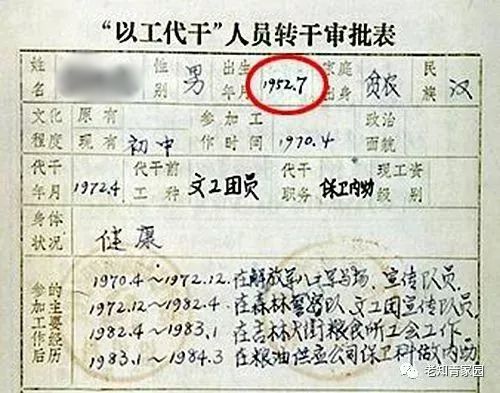 “以工代干”人员转干审批表
姓名 性别 男 出生年月 1952.7 家庭出身 贫农 民族 汉
文化程度 原有 现有 初中 参加工作时间 1970.4 政治面貌
代干年月 1972.4 代干前工种 文工团员 代干职务 保卫内勤 现工资级别
身体状况 健康
参加工作后的主要经历
1970.4~1972.12.在解放军八二军马场、宣传队员.
1972.12~1982.4.在森林警察队、文工团宣传队员.
1982.4~1983.1 在吉林大街粮食所工会工作
1983.1~1984.3 在粮油供应公司保卫科做内勤
老知青家园